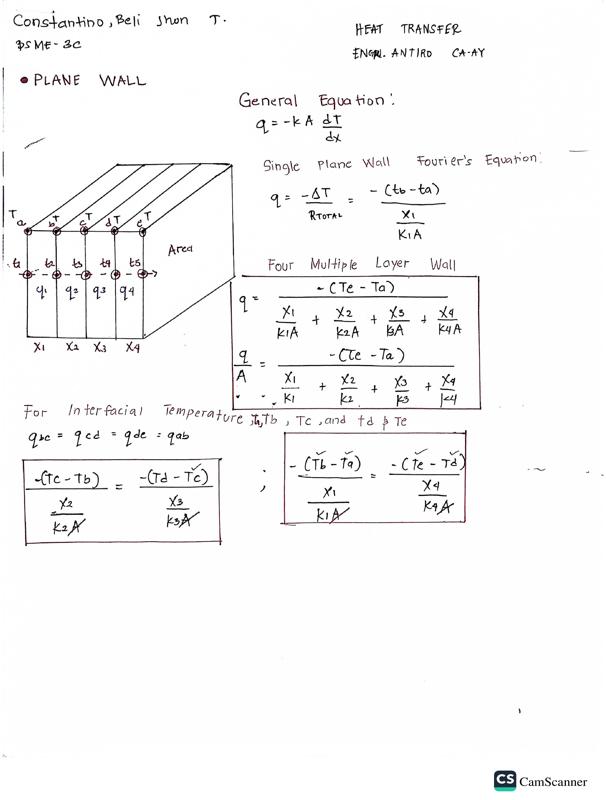 Constantino, Beli Jhon T.
BSME-3C
HEAT TRANSFER
ENGR. ANTIRO CA-AY
• PLANE WALL
General Equation:
q = -kA dT/dx
Single Plane Wall Fourier's Equation:
q = -ΔT / RTOTAL = -(tb - ta) / (X1 / K1A)
Ta bT cT dT eT
t1 t2 t3 t4 t5
q1 q2 q3 q4
X1 X2 X3 X4
Area
Four Multiple Layer Wall
q = -(Te - Ta) / (X1/K1A + X2/K2A + X3/K3A + X4/K4A)
q/A = -(Te - Ta) / (X1/K1 + X2/K2 + X3/K3 + X4/K4)
For Interfacial Temperature, Ta, Tb, Tc, and td & Te
qbc = qcd = qde = qab
-(Tc - Tb) / (X2 / K2A) = -(Td - Tc) / (X3 / K3A)
; -(Tb - Ta) / (X1 / K1A) = -(Te - Td) / (X4 / K4A)
CS CamScanner